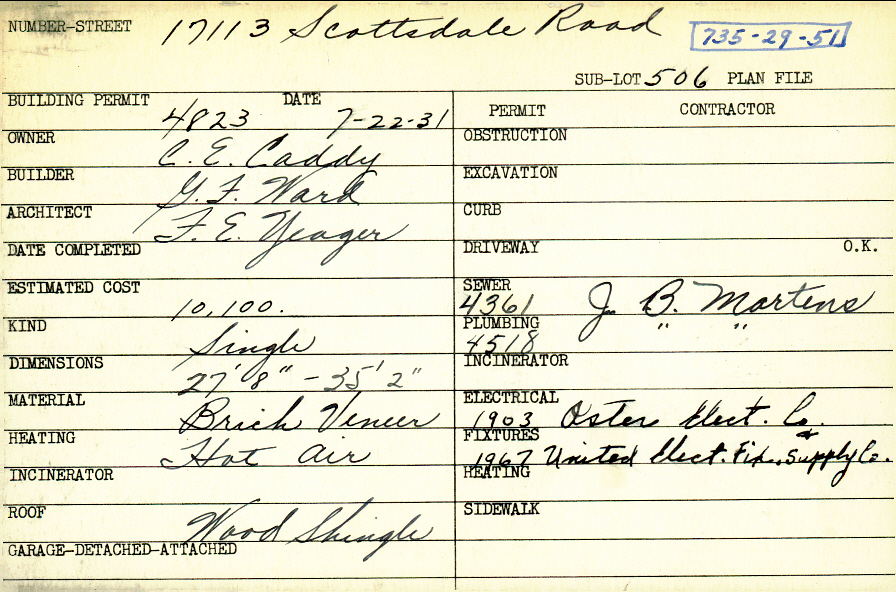 NUMBER-STREET 17113 Scottsdale Road 735-29-51
SUB-LOT 506 PLAN FILE
BUILDING PERMIT 4823 DATE 7-22-31
OWNER C. E. Caddy
BUILDER G. F. Ward
ARCHITECT F. E. Yeager
DATE COMPLETED
ESTIMATED COST 10,100.
KIND Single
DIMENSIONS 27' 8" - 35' 2"
MATERIAL Brick Veneer
HEATING Hot Air
INCINERATOR
ROOF Wood Shingle
GARAGE-DETACHED-ATTACHED
PERMIT CONTRACTOR
OBSTRUCTION
EXCAVATION
CURB
DRIVEWAY O.K.
SEWER 4361 J. B. Martens
PLUMBING 4518 " "
INCINERATOR
ELECTRICAL 1903 Oster Elect. Co.
FIXTURES 1967 United Elect. Fix. & Supply Co.
HEATING
SIDEWALK